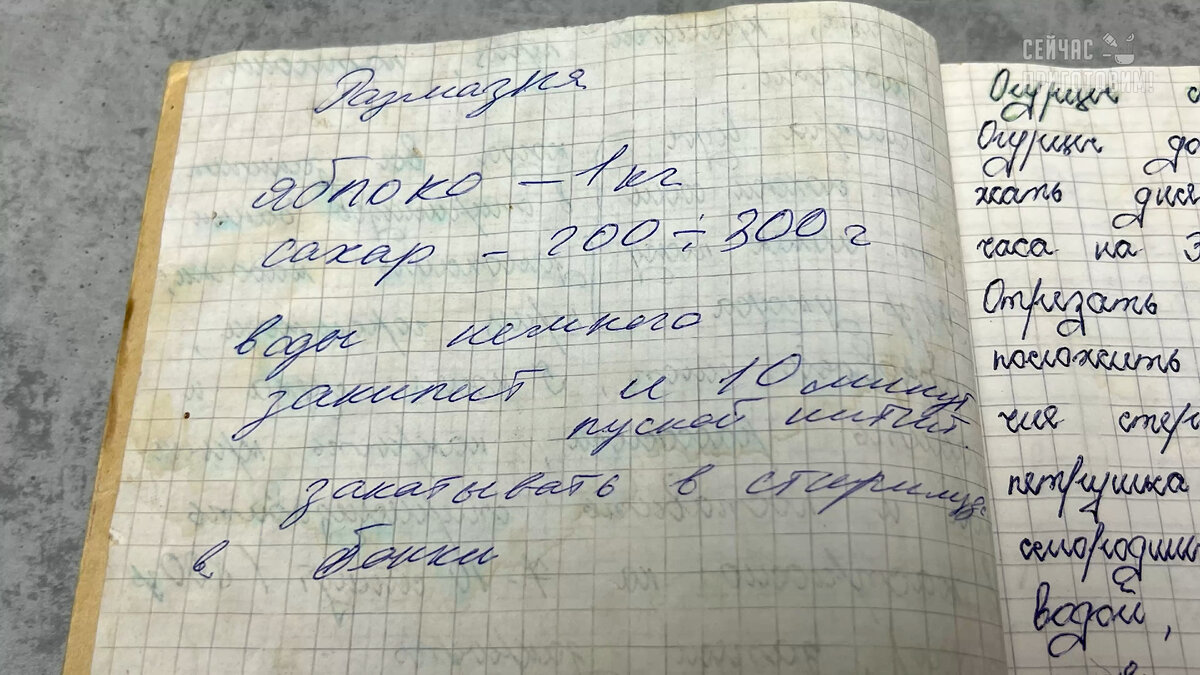 Размазня
яблоко – 1 кг
сахар – 200 ÷ 300 г
воды немного
закипит и 10 минут
пускай кипит
закатывать в
в банки
Огурцы
Огурцы до
жать дня
часа на 3
Отрезать
положить
чия стер
петрушка
смородины
водой,
СЕЙЧАС
ПРИГОТОВИМ!